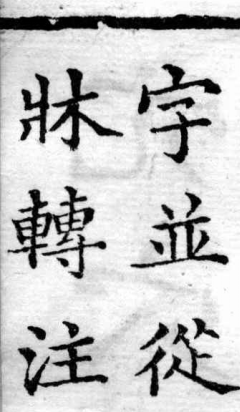 字並從
牀轉注